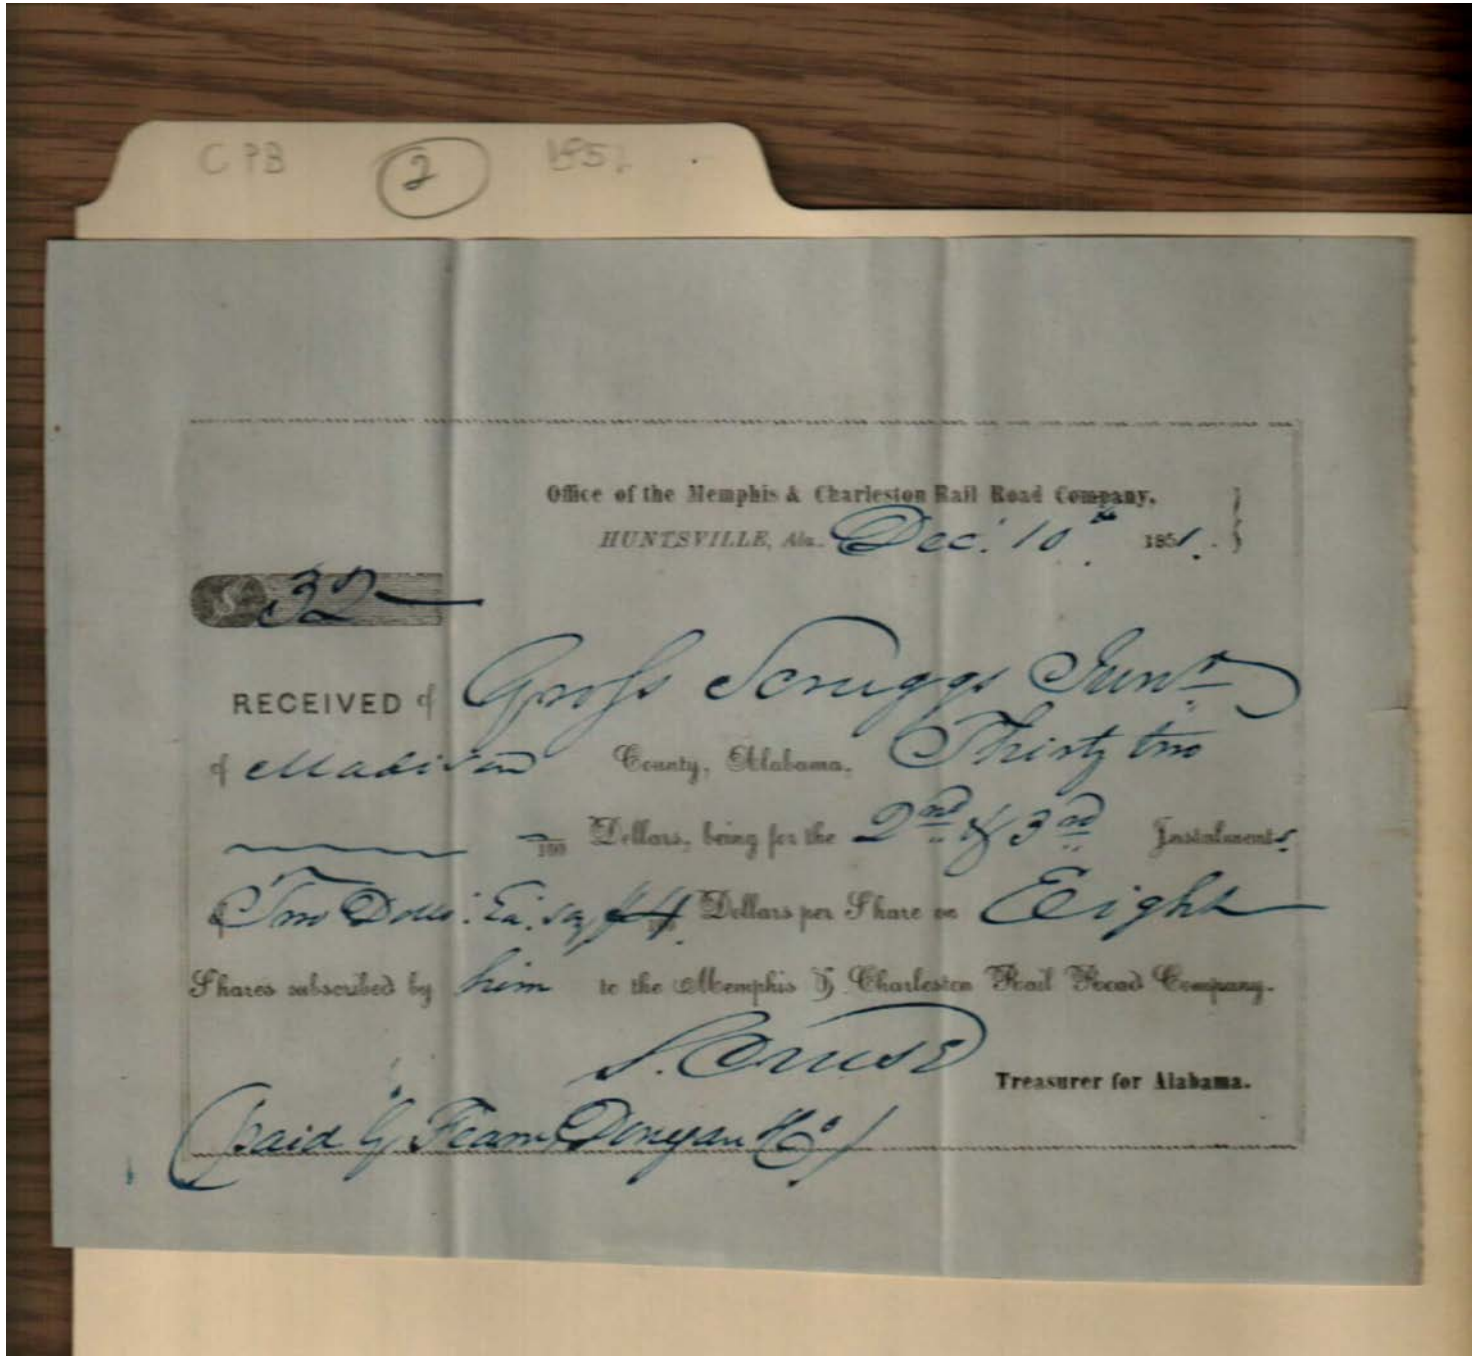 CPB 2 1851
Office of the Memphis & Charleston Rail Road Company,
HUNTSVILLE, Ala. Dec. 10th 1851.
$ 32
RECEIVED of Gross Scruggs Junr
of Madison County, Alabama, Thirty two
/100 Dollars, being for the 2nd & 3rd Instalments
Two Dolls. Ea. say $4 Dollars per Share on Eight
Shares subscribed by him to the Memphis & Charleston Rail Road Company.
S. Cruse
Treasurer for Alabama.
(paid by Fearn, Donegan & Co.)